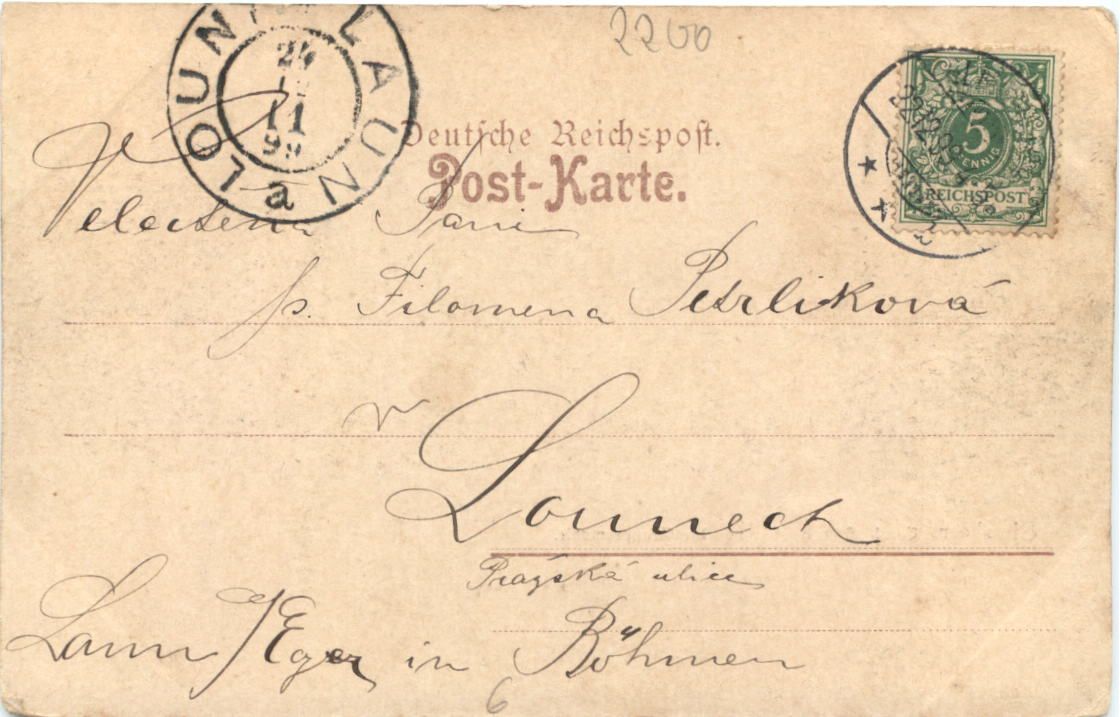 2200
LOUNY LAUN
24
12
11
99
a
Deutsche Reichspost.
Post-Karte.
5
PFENNIG
REICHSPOST
Velectěná Paní
p. Filomena Petrliková
v
Lounech
Pražská ulice
Laun / Eger in Böhmen
6